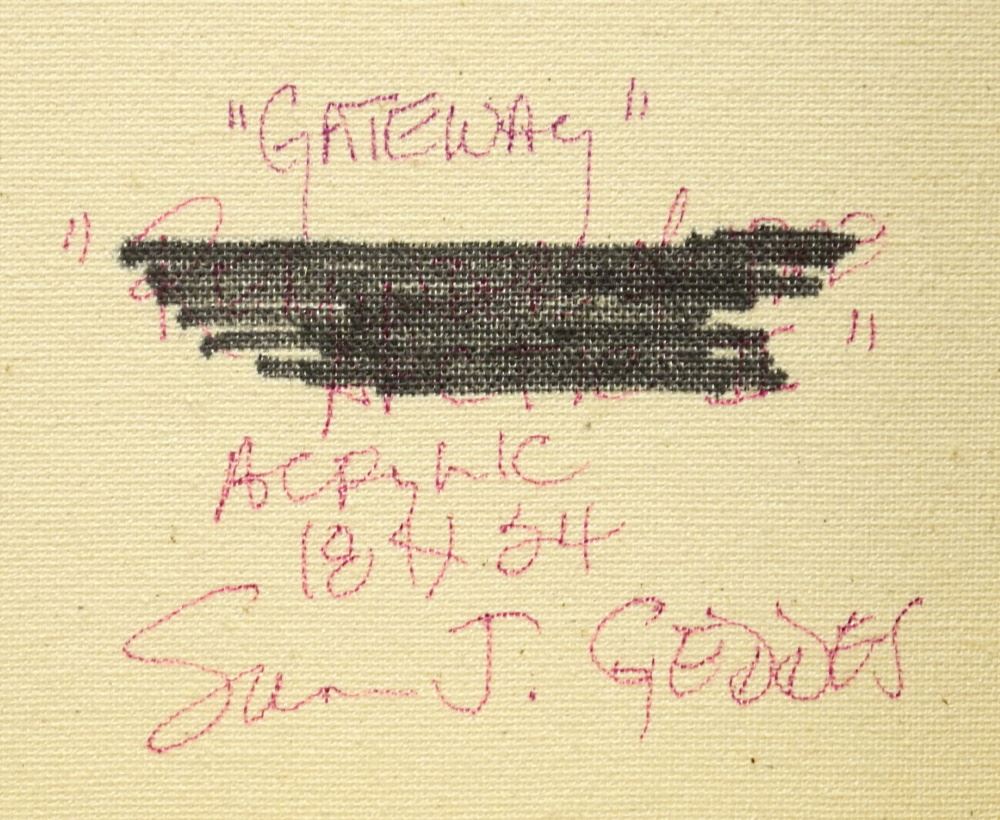 "GATEWAY"
" "
ACRYLIC
18 X 24
Susan J. GEDDES